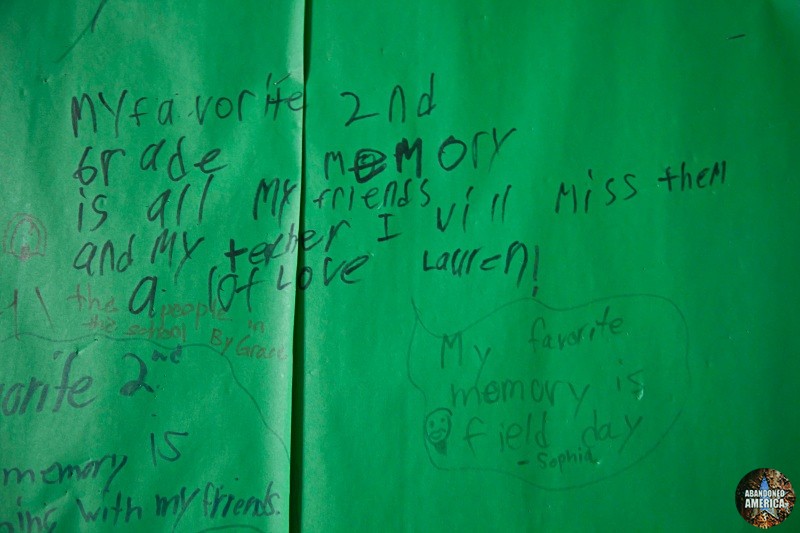 My favorite 2nd
Grade memory
is all my friends
and my techer I vill miss them
a lot Love Lauren!
the people in
the school By Grace
orite 2nd
memory is
ning with my friends.
My favorite
memory is
field day
- Sophia
ABANDONED
AMERICA